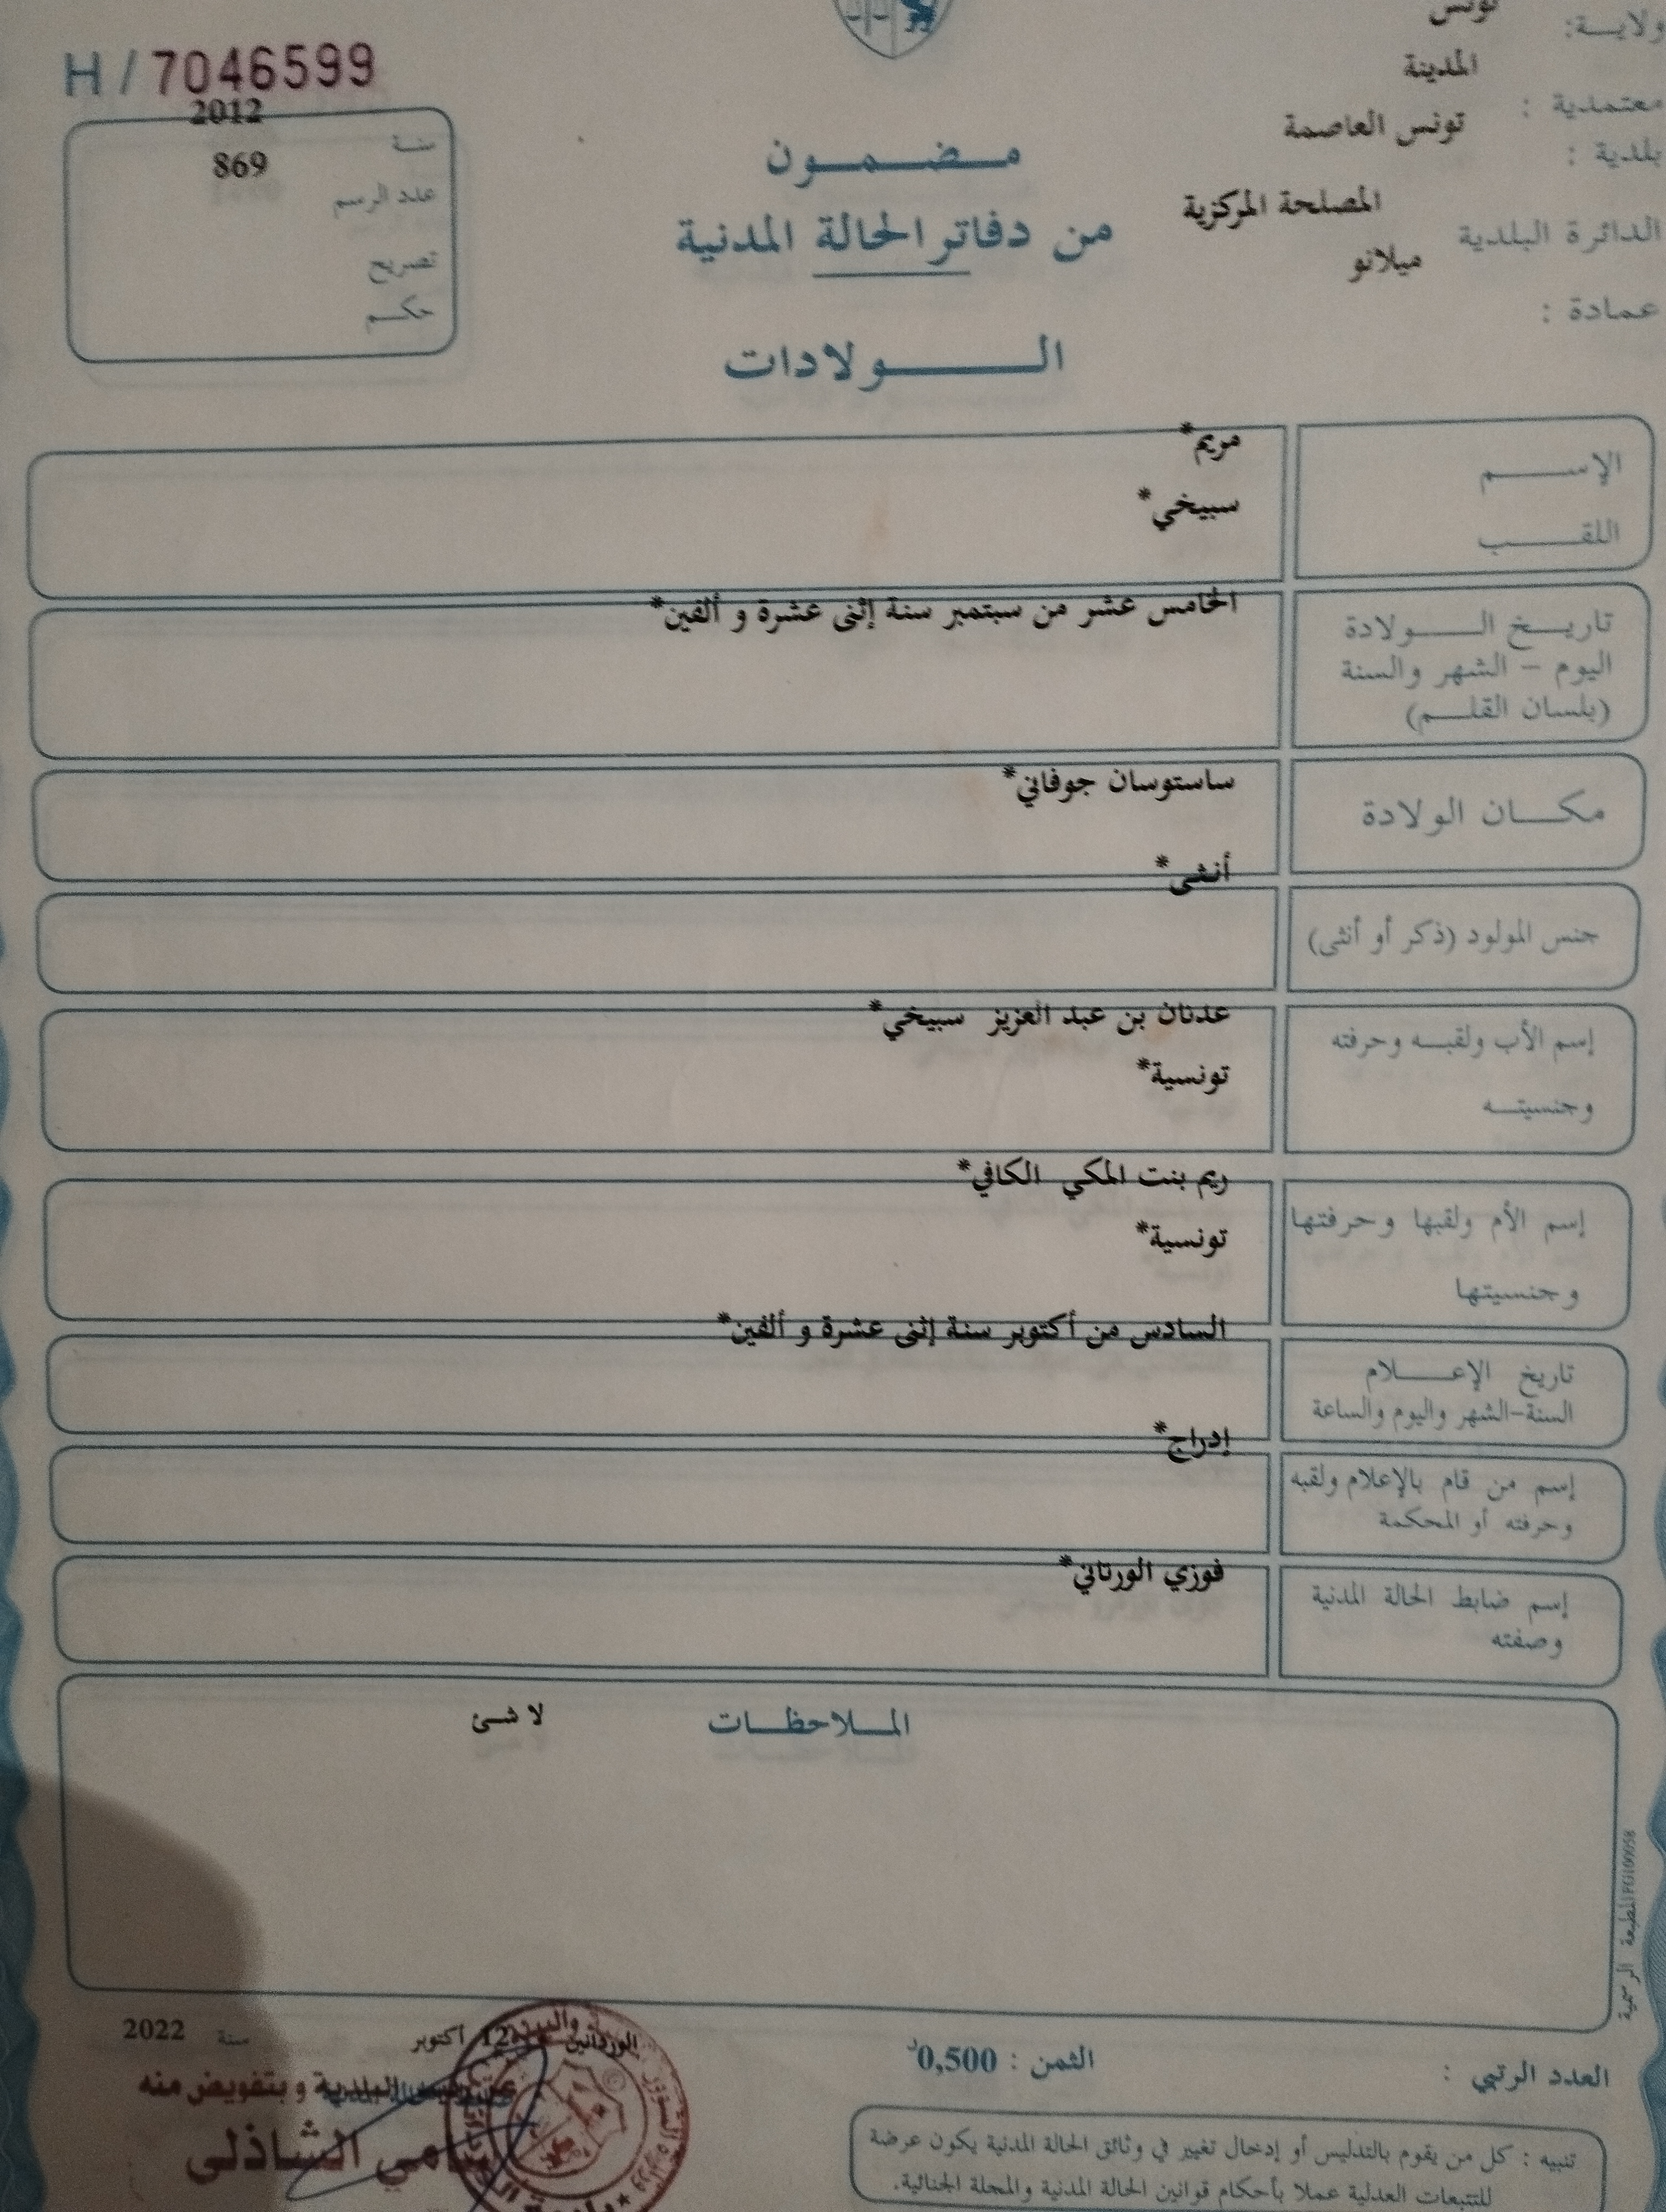 ولايـــة: تونس
معتمدية : المدينة
بلدية : تونس العاصمة
الدائرة البلدية المصلحة المركزية
ميلانو
عمادة :
H / 7046599
سنة 2012
عدد الرسم 869
تصريح
حكم
مضمون
من دفاتر الحالة المدنية
الولادات
الإسم مريم*
اللقب سبيخي*
تاريخ الولادة الخامس عشر من سبتمبر سنة إثنى عشرة و ألفين*
اليوم – الشهر والسنة
(بلسان القلم)
مكان الولادة ساستوسان جوفاني*
جنس المولود (ذكر أو أنثى) أنثى*
إسم الأب ولقبه وحرفته عدنان بن عبد العزيز سبيخي*
وجنسيته تونسية*
إسم الأم ولقبها وحرفتها ريم بنت المكي الكافي*
وجنسيتها تونسية*
تاريخ الإعلام السادس من أكتوبر سنة إثنى عشرة و ألفين*
السنة-الشهر واليوم والساعة
إسم من قام بالإعلام ولقبه إدراج*
وحرفته أو المحكمة
إسم ضابط الحالة المدنية فوزي الورتاني*
وصفته
الملاحظات لا شئ
المطبعة الرسمية
العدد الرتبي :
الثمن : 0,500د
الوردانين 12 أكتوبر سنة 2022
البلدية وبتفويض منه
الشاذلي
تنبيه : كل من يقوم بالتدليس أو إدخال تغيير في وثائق الحالة المدنية يكون عرضة
للتتبعات العدلية عملا بأحكام قوانين الحالة المدنية والمجلة الجنائية.